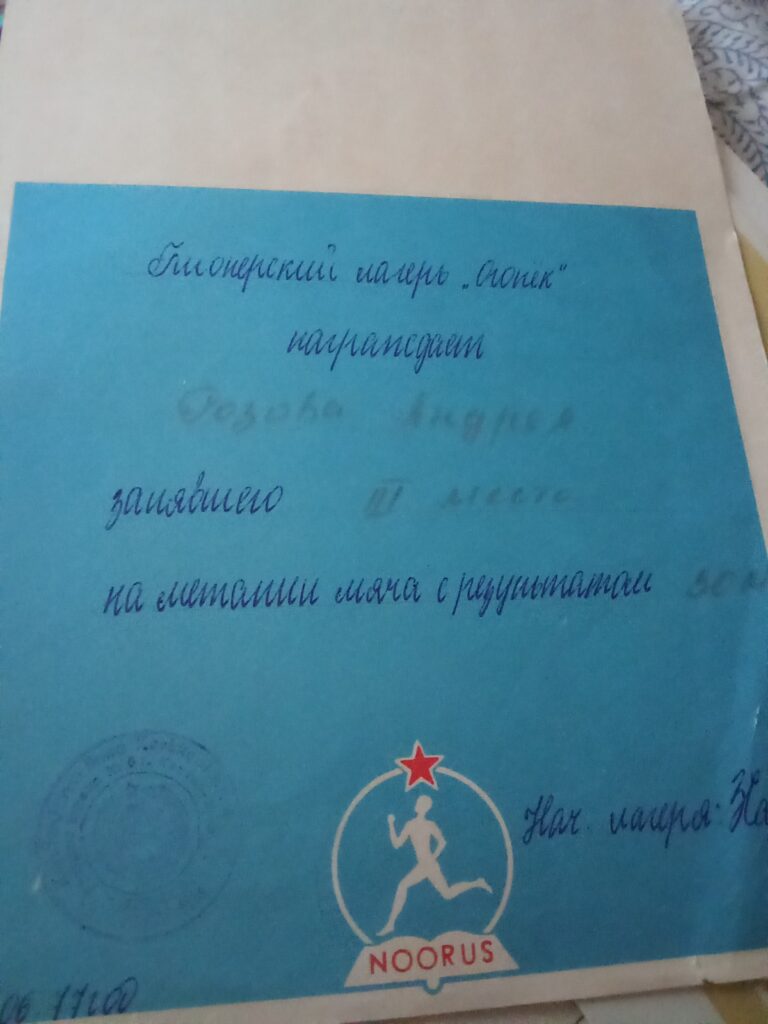 Пионерский лагерь „Огонёк"
награждает
Розова Андрея
занявшего III место
на метании мяча с результатом
Нач. лагеря:
NOORUS